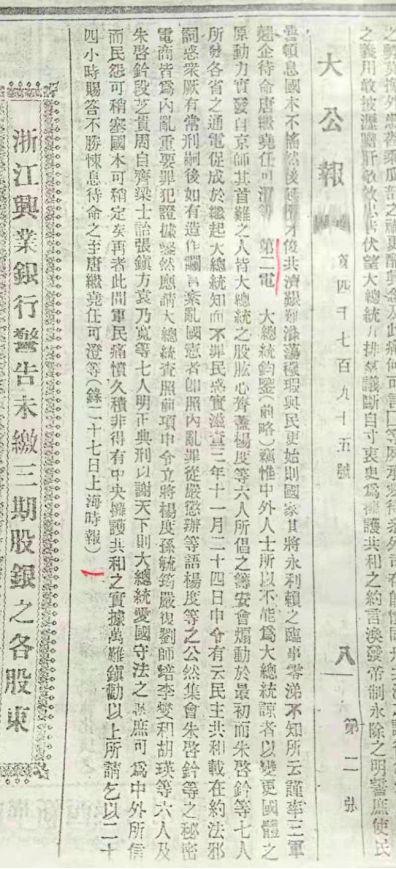 之義用敢披瀝膽肝敬效忠告伏望大總統力排羣議斷自寸衷更爲擁護共和之約言渙發帝制永除之明誓庶使民
大公報
第四千七百九十五號
八
第二張
嵒頓息國本不搖然後延攬才俊共濟艱難滌蕩穢瑕與民更始則國家其將永利賴之臨事零涕不知所云謹率三軍
翹企待命唐繼堯任可澄等 第二電 大總統鈞鑒(前略)竊惟中外人士所以不能爲大總統諒者以變更國體之
原動力實發自京師其首難之人皆大總統之股肱心膂蓋楊度等六人所倡之籌安會煽動於最初而朱啓鈐等七人
所發各省之通電促成於繼起大總統知而不罪民惑實滋查三年十一月二十四日申令有云民主共和載在約法邪
詞惑衆厥有常刑嗣後如有造作讕言紊亂國憲者卽照內亂罪從嚴懲辦等語楊度等之公然集會朱啓鈐等之秘密
電商皆爲內亂重要罪犯證據鑿然應請大總統查照前項申令立將楊度孫毓筠嚴復劉師培李燮和胡瑛等六人及
朱啓鈐段芝貴周自齊梁士詒張鎮方袁乃寬等七人明正典刑以謝天下則大總統愛國守法之誠庶可爲中外所信
而民怨可稍塞國本可稍定矣再者此間軍民痛憤久積非得有中央擁護共和之實據萬難鎮勸以上所請乞以二十
四小時賜答不勝悚息待命之至唐繼堯任可澄等(錄二十七日上海時報)
浙江興業銀行警告未繳三期股銀之各股東